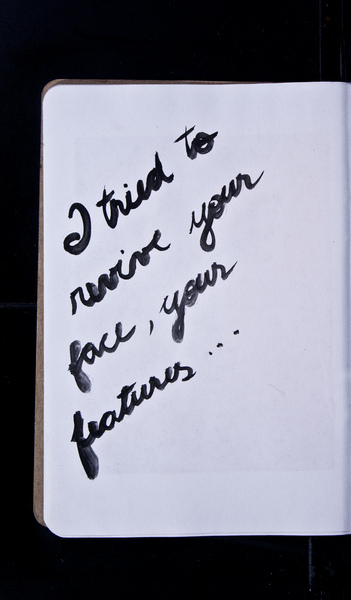 I tried to
revive your
face, your
features...